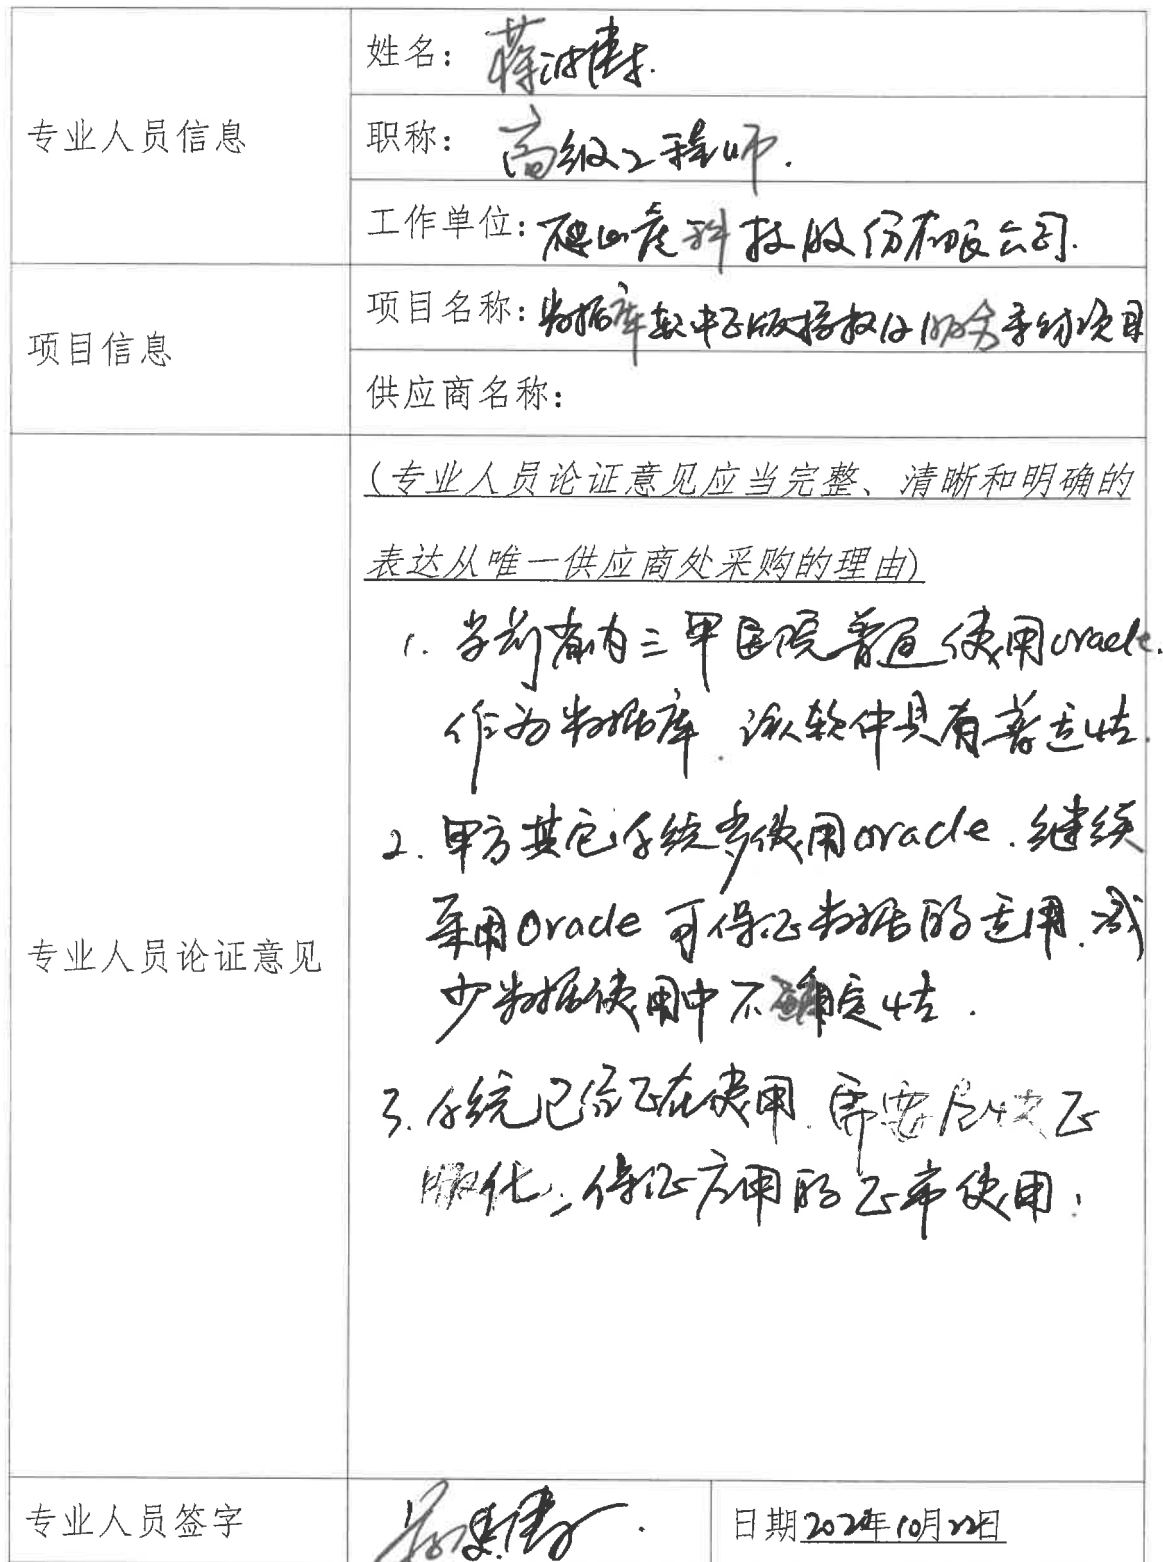 专业人员信息
姓名：蒋
职称：高级工程师.
工作单位：科技股份有限公司.
项目信息
项目名称：数据库软件正版授权及服务采购项目
供应商名称：
专业人员论证意见
(专业人员论证意见应当完整、清晰和明确的
表达从唯一供应商处采购的理由)
1. 当前省内三甲医院普遍使用oracle.
作为数据库.该软件具有普适性.
2. 甲方其它系统多使用oracle.继续
采用Oracle可保证数据的适用.减
少数据使用中不确定性.
3. 系统已经正在使用.需要尽快正
版化,保证应用的正常使用.
专业人员签字
日期 2024年10月22日